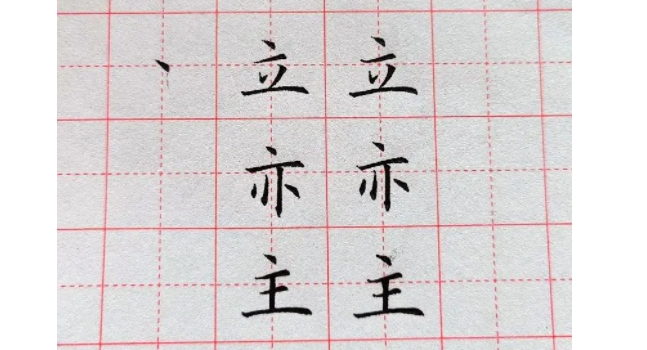 丶 立 立
亦 亦
主 主